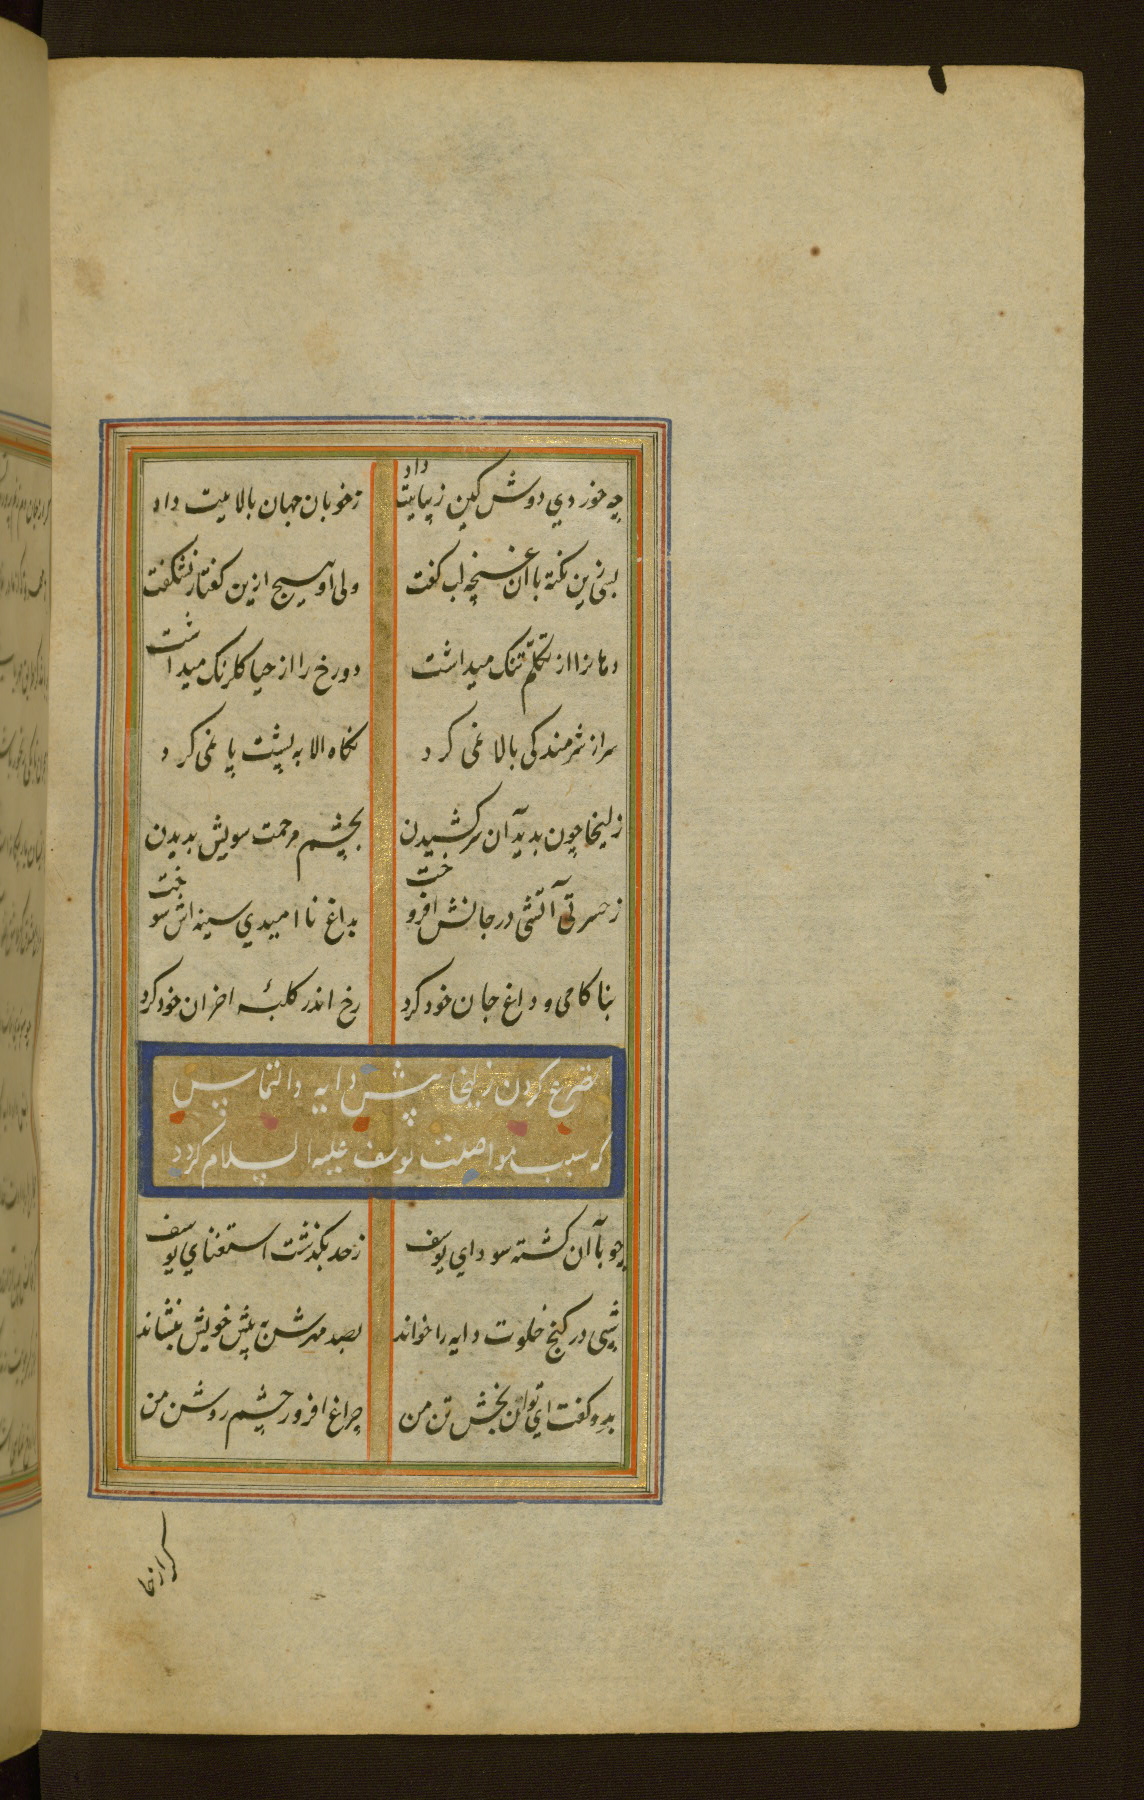 چه خوردی دوش کین زیباییت داد
زخوبان جهان بالاییت داد
بسی زین نکته با آن غنچه لب گفت
ولی او هیچ ازین گفتار نشکفت
دهانرا از تکلم تنک میداشت
دو رخ را از حیا کلرنک میداشت
سر از شرمندکی بالا نمی کرد
نکاه الا به پشت پا نمی کرد
زلیخا چون بدید آن سر کشیدن
بچشم مرحمت سویش بدیدن
زحسرت آتشی در جانش افروخت
بداغ نا امیدی سینه اش سوخت
بناکامی وداع جان خود کرد
رخ اندر کلبهٔ احزان خود کرد
تضرع کردن زلیخا پیش دایه والتماس
که سبب مواصلت یوسف علیه السلام کردد
چو با آن کشته سودای یوسف
زحد بکذشت استغنای یوسف
شبی در کنج خلوت دایه را خواند
بصد مهرش به پیش خویش بنشاند
بدو کفت ای توان بخش تن من
چراغ افروز چشم روشن من
کر از خا